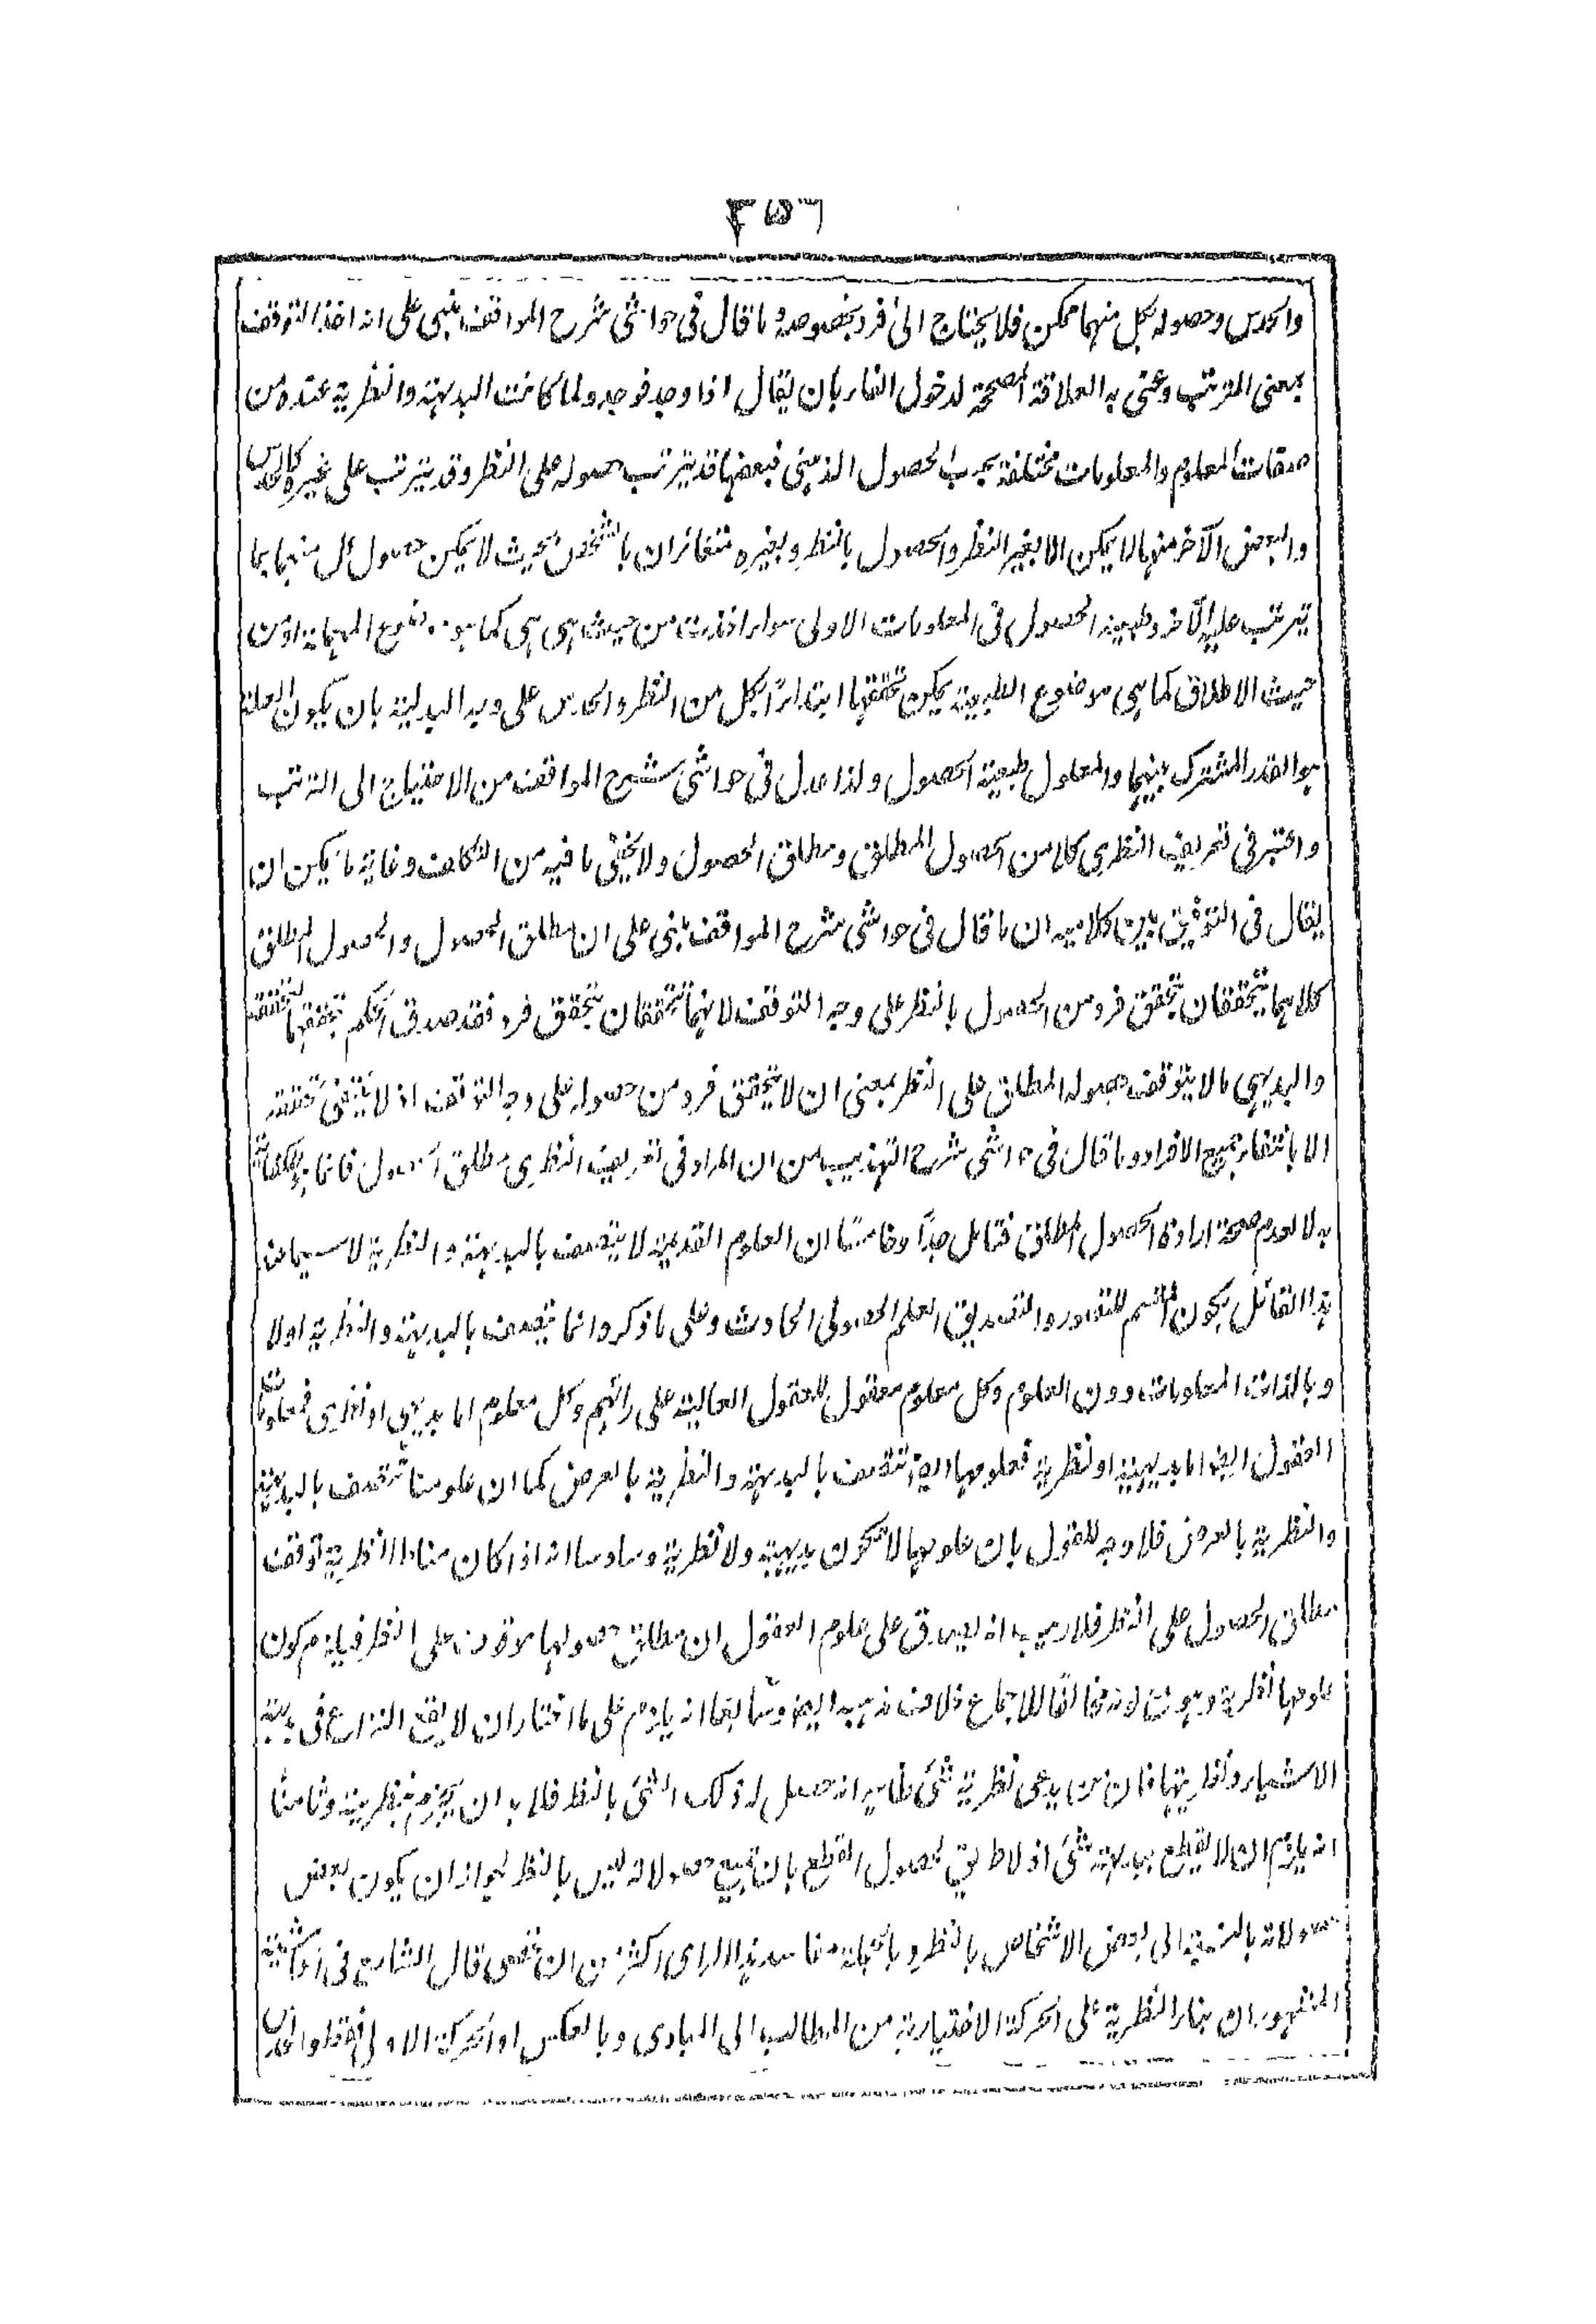 ٢٥٦
والحدس وحصوله بكل منهما ممكن فلا يحتاج الى فرد بخصوصه وما قال فى حواشى شرح المواقف فمبنى على انه اخذ التوقف
بمعنى الترتب وعنى به العلاقة المصححة لدخول الفاء بان يقال اذا وجد فوجد ولما كانت البديهة والنظرية عنده من
صفات المعلوم والمعلومات مختلفة بحسب الحصول الذهنى فبعضها قد يترتب حصوله على النظر وقد يترتب على غيره كالحدس
والبعض الآخر منها لا يمكن الا بغير النظر والحصول بالنظر وبغيره متغائران بالتشخص بحيث لا يمكن حصول كل منهما بما
يترتب عليه الآخر وطبيعة الحصول فى المعلومات الاولى سواء اخذت من حيث هى هى كما هو موضوع المهملة او من
حيث الاطلاق كما هى موضوع الطبيعية يمكن تحققها ابتداءً بكل من النظر والحدس على وجه البدلية بان يكون العلة
هو القدر المشترك بينهما والمعلول طبيعة الحصول ولذا عدل فى حواشى شرح المواقف من الاحتياج الى الترتب
واعتبر فى تعريف النظرى كلا من الحصول المطلق ومطلق الحصول ولا يخفى ما فيه من التكلف وغاية ما يمكن ان
يقال فى التوفيق بين كلاميه ان ما قال فى حواشى شرح المواقف مبنى على ان مطلق الحصول والحصول المطلق
كلاهما يتحققان بتحقق فرد من الحصول بالنظر على وجه التوقف لانهما يتحققان بتحقق فرد فقد صدق الحكم بتحققهما
والبديهى ما لا يتوقف حصوله المطلق على النظر بمعنى ان لا يتحقق فرد من حصوله على وجه التوقف اذ لا ينتفى تحققه
الا بانتفاء جميع الافراد وما قال فى حواشى شرح التهذيب من ان المراد فى تعريف النظرى مطلق الحصول فانما
به لا لعدم صحة ارادة الحصول المطلق فتامل جداً وخامسًا ان العلوم القديمة لا يتصف بالبديهة والنظرية لا سيما عند
هذا القائل بكون المقسم للتصور والتصديق العلم الحصولى الحادث وعلى ما ذكروا انما يتصف بالبديهة والنظرية اولا
وبالذات المعلومات دون العلوم وكل معلوم معقول للعقول العالية على رائهم وكل معلوم اما بديهى او نظرى فمعلومات
العقول ايضا اما بديهية او نظرية فعلومها ايضا تتصف بالبديهة والنظرية بالعرض كما ان علومنا تتصف بالبديهة
والنظرية بالعرض فلا وجه للقول بان علومها لا تكون بديهية ولا نظرية وسادسا انه اذا كان مناط النظرية توقف
مطلق الحصول على النظر فلا ريب انه يصدق على علوم العقول ان مطلق حصولها موقوف على النظر فيلزم كون
علومها نظرية وهو مع كونه مخالفًا للاجماع خلاف مذهبه ايضا وسابعًا انه يلزم على ما اختار ان لا يقع النزاع فى بديهة
الاشياء ونظريتها فان من يدعى نظرية شئ ظاهر انه حصل له ذلك الشئ بالنظر فلا بد ان يجزم بنظريته وثامنًا
انه يلزم ان لا يقطع ببديهة شئ اذ لا طريق لحصول القطع بان جميع حصولاته ليس بالنظر لجواز ان يكون بعض
حصولاته بالنسبة الى بعض الاشخاص بالنظر وبالجملة مفاسد هذا الراى اكثر من ان تحصى قال الشارح فى الحاشية
المشهور ان بناء النظرية على الحركة الاختيارية من المطالب الى المبادى وبالعكس او الحركة الاولى فقط والحدس